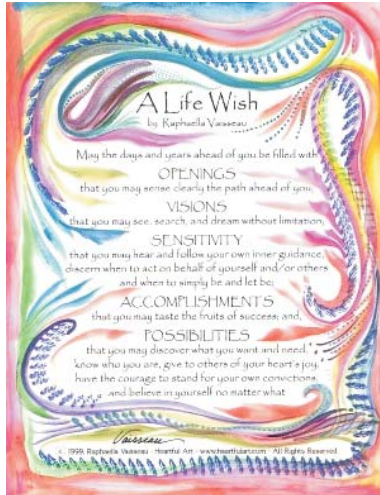 A Life Wish
by Raphaella Vaisseau
May the days and years ahead of you be filled with
OPENINGS
that you may sense clearly the path ahead of you;
VISIONS
that you may see, search, and dream without limitation;
SENSITIVITY
that you may hear and follow your own inner guidance,
discern when to act on behalf of yourself and/or others
and when to simply be and let be;
ACCOMPLISHMENTS
that you may taste the fruits of success; and,
POSSIBILITIES
that you may discover what you want and need,
know who you are, give to others of your heart's joy,
have the courage to stand for your own convictions,
and believe in yourself no matter what
Vaisseau
© 1999, Raphaella Vaisseau · Heartful Art · www.heartfulart.com · All Rights Reserved